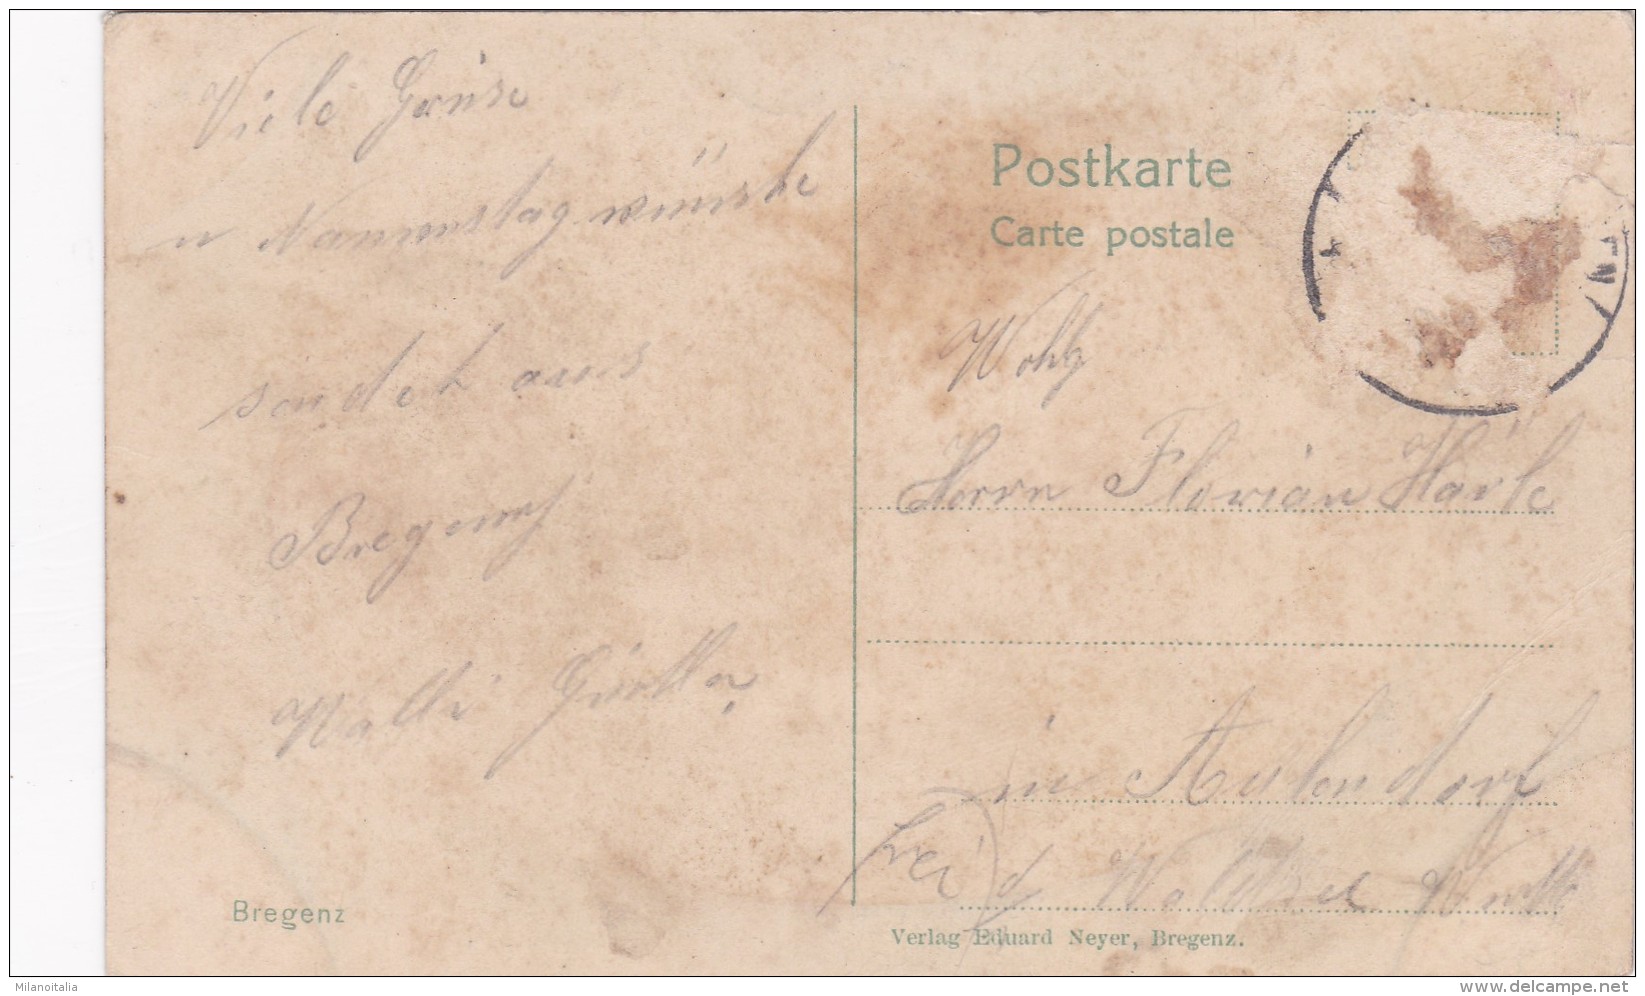 Viele Grüse
u Nammenstagwünsche
sendet aus
Bregenz
Postkarte
Carte postale
Wohlg
Herrn Florian Härle
in Aulendorf
frei
Bregenz
Verlag Eduard Neyer, Bregenz.
Milanoitalia
www.delcampe.net